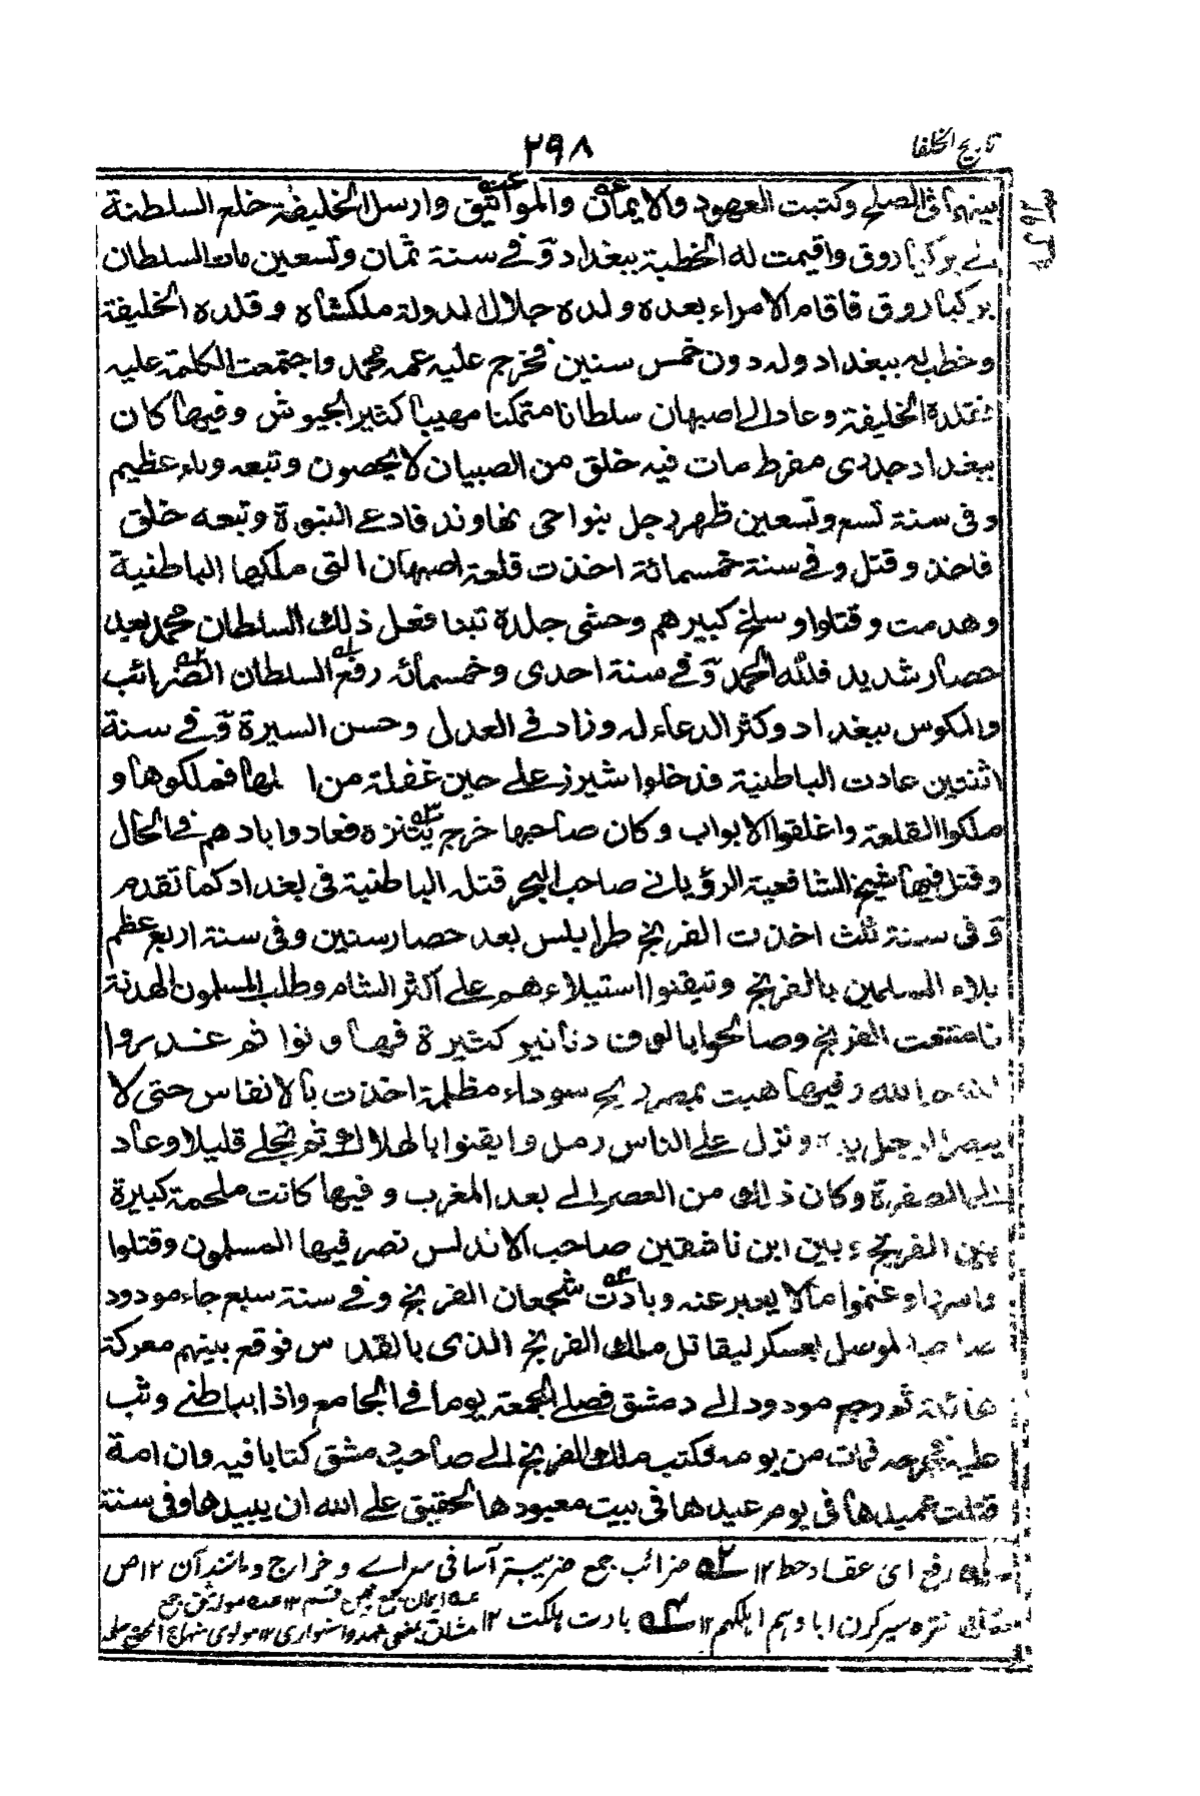 تاريخ الخلفا
٢٩٨
بينهما في الصلح وكتبت العهود والايمان والمواثيق وارسل الخليفة خلع السلطنة
الى بركياروق واقيمت له الخطبة ببغداد وفي سنة ثمان وتسعين مات السلطان
بركياروق فاقام الامراء بعده ولده جلال الدولة ملكشاه وقلده الخليفة
وخطب له ببغداد وله دون خمس سنين فخرج عليه عمه محمد واجتمعت الكلمة عليه
فقلدة الخليفة وعاد الى اصبهان سلطانا متمكنا مهيبا كثير الجيوش وفيها كان
ببغداد جدرى مفرط مات فيه خلق من الصبيان لا يحصون وتبعه وباء عظيم
وفى سنة تسع وتسعين ظهر رجل بنواحى نهاوند فادعى النبوة وتبعه خلق
فاخذ وقتل وفي سنة خمسمائة اخذت قلعة اصبهان التى ملكها الباطنية
وهدمت وقتلوا وسلخ كبيرهم وحشى جلدة تبنا فعل ذلك السلطان محمد بعد
حصار شديد فلله الحمد وفي سنة احدى وخمسمائه رفع السلطان الضرائب
والمكوس ببغداد وكثر الدعاء له وزاد في العدل وحسن السيرة وفي سنة
اثنتين عادت الباطنية فدخلوا شيرز على حين غفلة من ا لها فملكوها و
ملكوا القلعة واغلقوا الابواب وكان صاحبها خرج يتنزه فعاد وابادهم في الحال
وقتل فيها شيخ الشافعية الرؤيانى صاحب البحر قتله الباطنية فى بغداد كما تقدم
وفى سنة ثلث اخذت الفرنج طرابلس بعد حصار سنين وفى سنة اربع عظم
بلاء المسلمين بالفرنج وتيقنوا استيلاءهم على اكثر الشام وطلب المسلمون الهدنة
فامتنعت الفرنج وصالحوا بالوف دنانير كثيرة فهادنوا ثم غدروا
لعنهم الله وفيها هبت بمصر ريح سوداء مظلمة اخذت بالانفاس حتى لا
يبصر الرجل يده ونزل على الناس رمل وايقنوا بالهلاك ثم تجلى قليلا وعاد
الى الصفرة وكان ذلك من العصر الى بعد المغرب وفيها كانت ملحمة كبيرة
بين الفرنج وبين ابن تاشفين صاحب الاندلس نصر فيها المسلمون وقتلوا
واسروا وغنموا مالا يعبر عنه وبادت شجعان الفرنج وفي سنة سبع جاء مودود
صاحب الموصل بعسكر ليقاتل ملك الفرنج الذى بالقدس فوقع بينهم معركة
هائلة ثم رجع مودود الى دمشق فصلى الجمعة يوما في الجامع واذا بباطني وثب
عليه فجرحه فمات من يومه فكتب ملك الفرنج الى صاحب دمشق كتابا فيه وان امة
قتلت عميدها فى يوم عيدها فى بيت معبودها لحقيق على الله ان يبيدها وفى سنة
رفع اى عقاد حط ١٢ ضرائب جمع ضريبة آسا في سراے وخراج ومانند آن ١٢ ص
ايمان جمع يمين قسم ١٢ مواثيق جمع
تنزه سير كرن اباد هم اهلكهم ١٢ بادت هلكت ١٢
ميثاق بمعنى عهد واستوارى ١٢ مولوى منهاج الحق سلمه